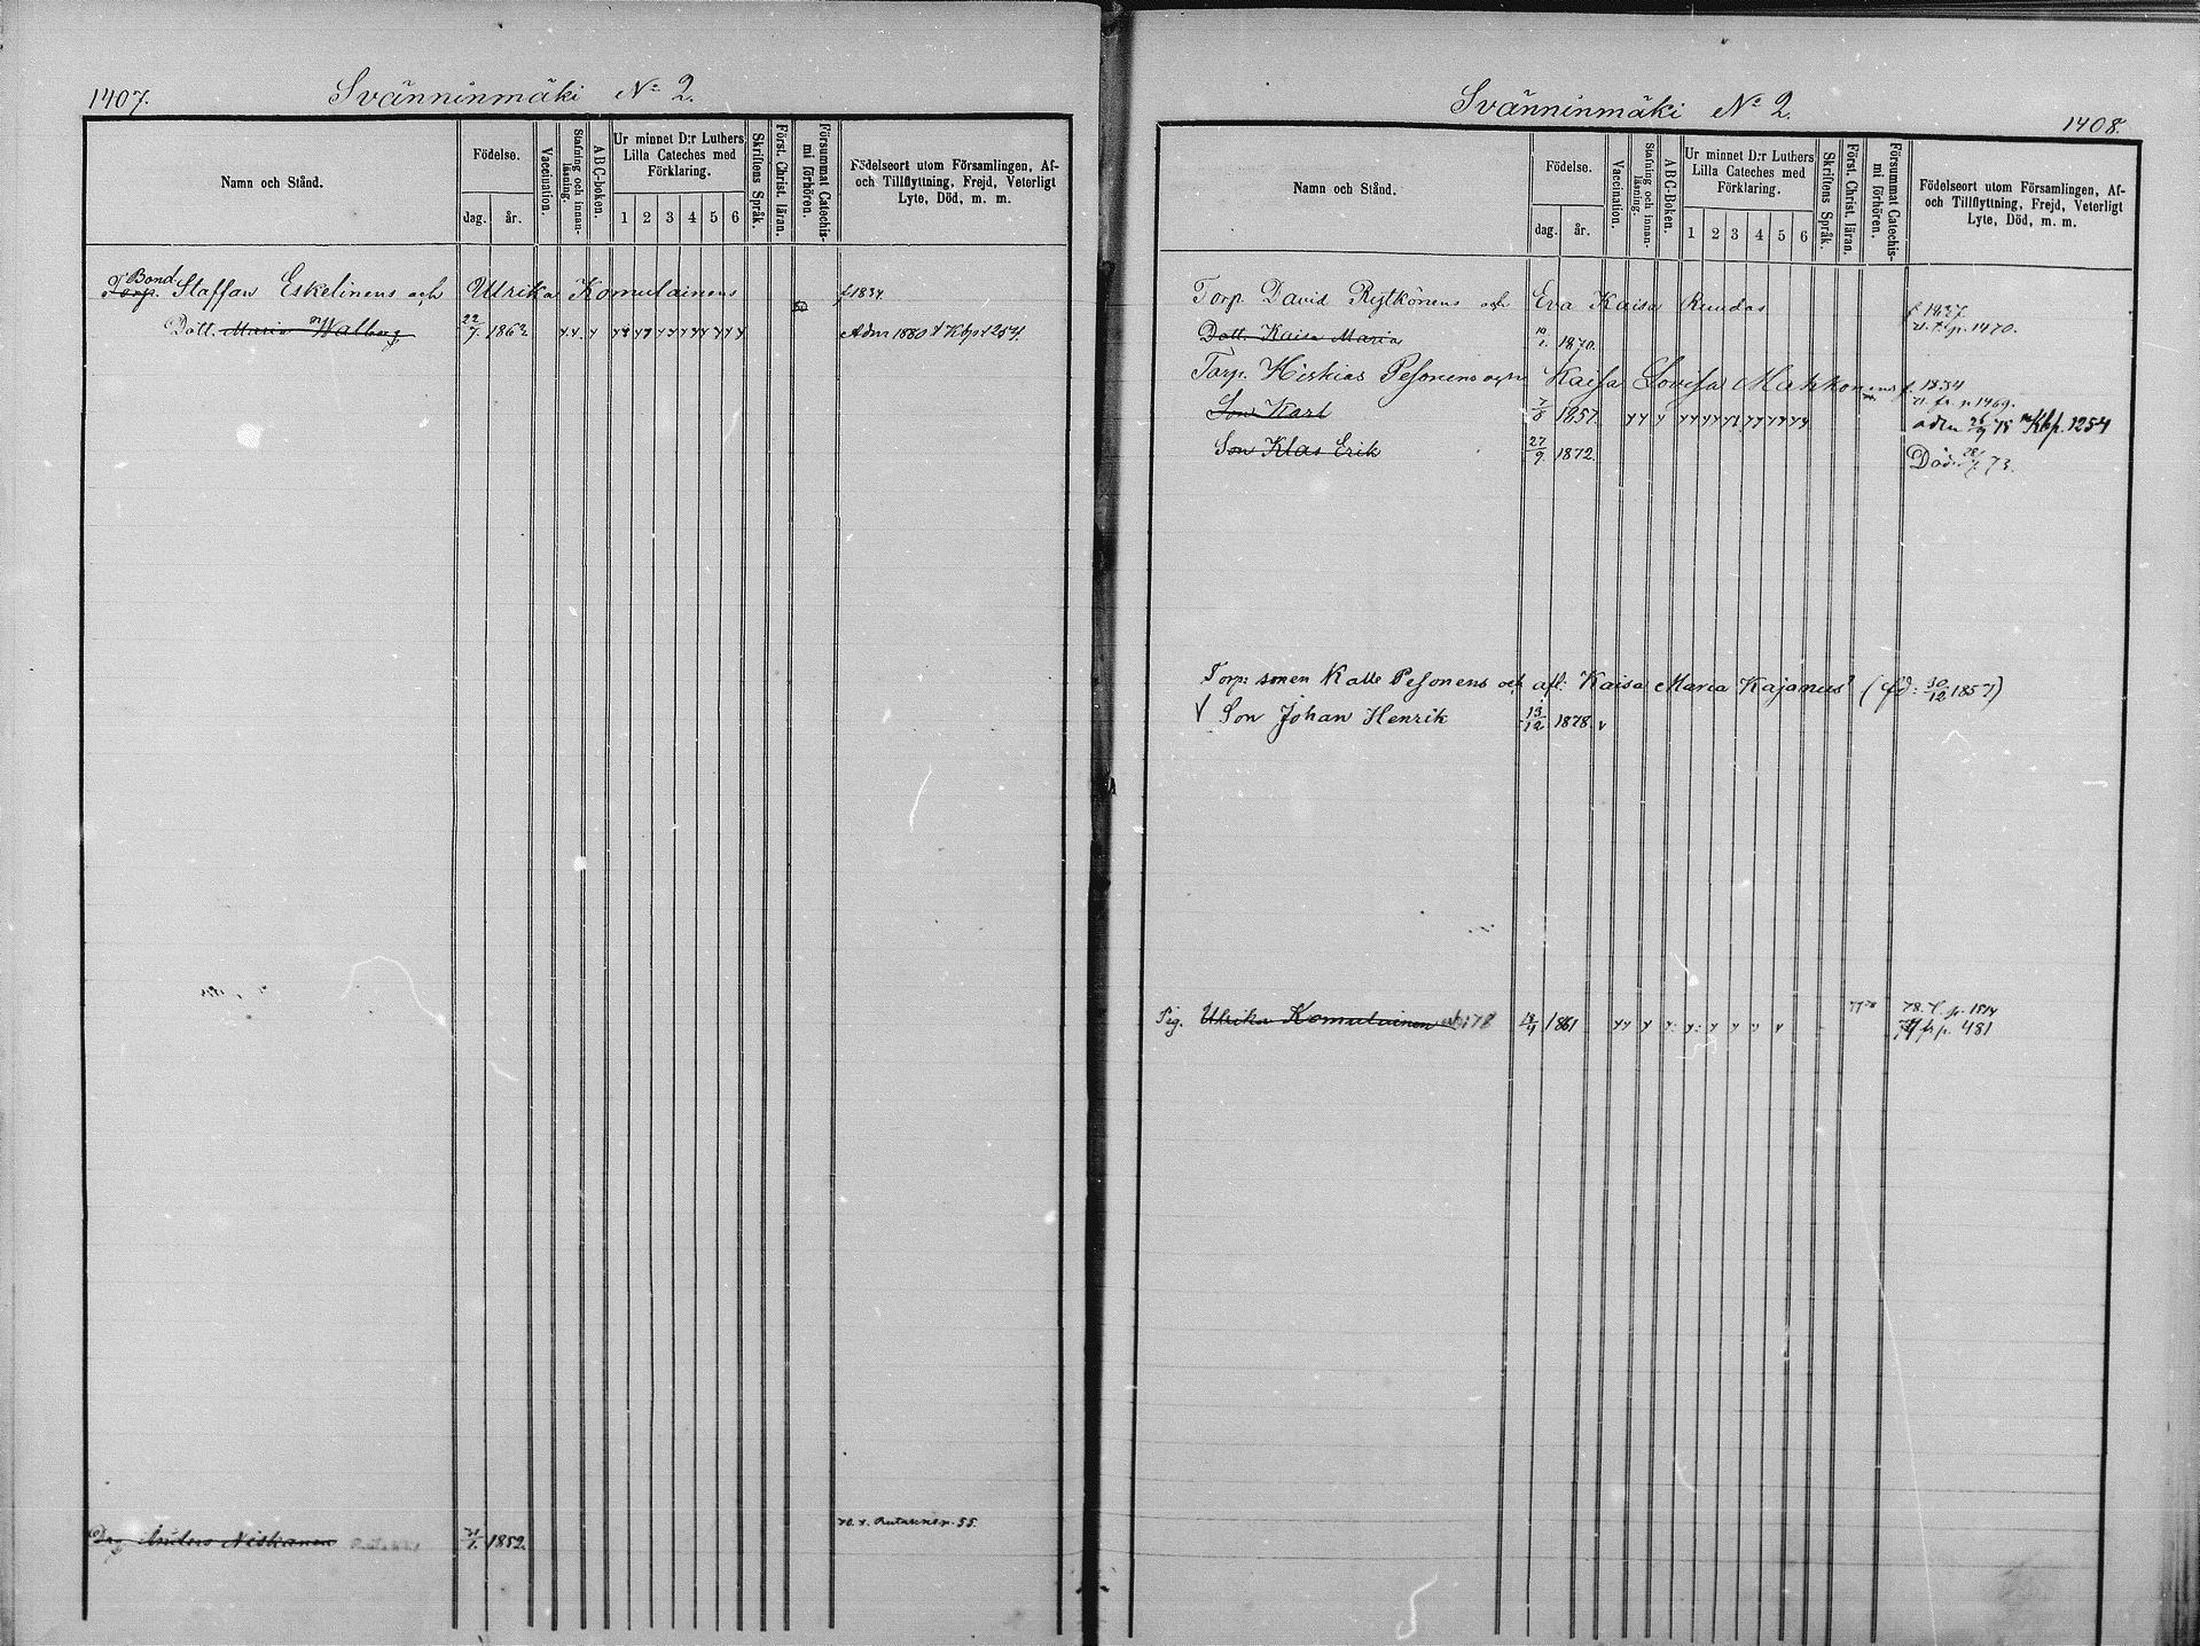 1407.
Svänninmäki No 2.
Namn och Stånd.
Födelse.
dag. år.
Vaccination.
Stafning och innanläsning.
ABC-boken.
Ur minnet D:r Luthers Lilla Cateches med Förklaring.
1 2 3 4 5 6
Skriftens Språk.
Först. Christ. läran.
Försummat Catechismi förhören.
Födelseort utom Församlingen, Af- och Tillflyttning, Frejd, Veterligt Lyte, Död, m. m.
Bond.
Torp. Staffan Eskelinens och Ulrika Komulainens f 1834
Dott. Maria Walborg 22/7 1862 Adm 1880 Kbp 1254.
Anders Niskanen 1852. 55.
Svänninmäki No 2.
1408.
Namn och Stånd.
Födelse.
dag. år.
Vaccination.
Stafning och innanläsning.
ABC-Boken.
Ur minnet D:r Luthers Lilla Cateches med Förklaring.
1 2 3 4 5 6
Skriftens Språk.
Först. Christ. läran.
Försummat Catechismi förhören.
Födelseort utom Församlingen, Af- och Tillflyttning, Frejd, Veterligt Lyte, Död, m. m.
Torp. David Rytkönens och Eva Kaisa Ruudas
p. 1470.
Dott. Kaisa Maria 1870.
Torp. Hiskias Pesonens och Kaisa Lovisa Mahkonens 1834
fr. p. 1469.
Son Karl 7/8 1857. adm Kbp. 1254
Son Klas Erik 27/9 1872. Död 73.
Torp: sonen Kalle Pesonens och afl: Kaisa Maria Kajanus (fd: 30/12 1857)
Son Johan Henrik 13/12 1878
Pig. Ulrika Komulainen 78 18/4 1861 78. p. 1514
fr p. 481